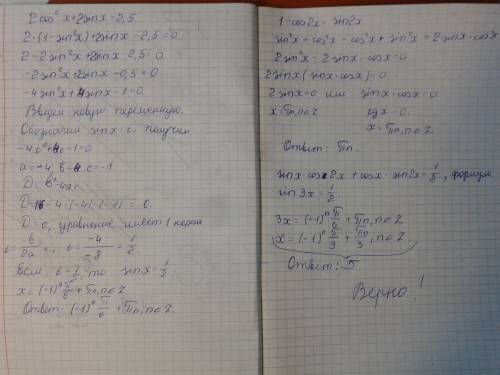 2cos²x+2sinx=2,5.
2·(1-sin²x)+2sinx-2,5=0
2-2sin²x+2sinx-2,5=0
-2sin²x+2sinx-0,5=0
-4sin²x+4sinx-1=0.
Введем новую переменную.
Обозначим sinx=t. получим
-4t²+4t-1=0
a=-4; b=4; c=-1
D=b²-4ac
D=16-4·(-4)·(-1)=0.
D=0, уравнение имеет 1 корень
t=-b/2a, t=-4/-8=1/2
Если t=1/2, то sinx=1/2.
x=(-1)ⁿ π/6+πn, n∈Z
Ответ: (-1)ⁿ π/6+πn, n∈Z.
1-cos2x=sin2x
sin²x+cos²x-cos²x+sin²x=2sinx·cosx
2sin²x-2sinx·cosx=0
2sinx(sinx-cosx)=0
2sinx=0 или sinx-cosx=0
x=πn, n∈Z
x=πn, n∈Z
Ответ: πn.
sinx·cos2x+cosx·sin2x=1/2, формула
sin3x=1/2.
3x=(-1)ⁿ π/6+πn, n∈Z
x=(-1)ⁿ π/9+πn/3, n∈Z
Ответ: 5
Верно!